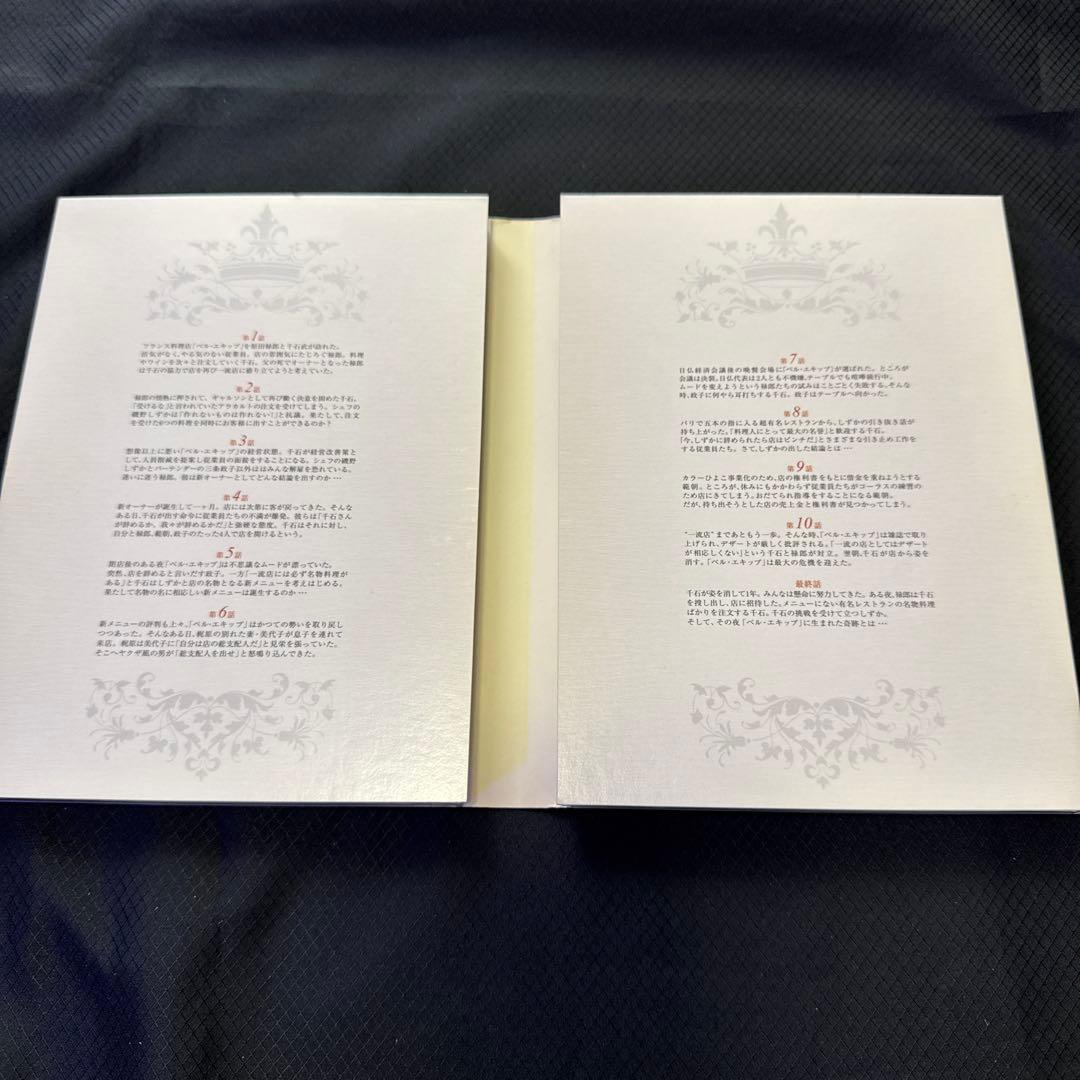 第1話
フランス料理店「ベル・エキップ」を原田禄郎と千石武が訪れた。
活気がなく、やる気のない従業員。店の雰囲気にたじろぐ禄郎。料理
やワインを次々と注文していく千石。父の死でオーナーとなった禄郎
は千石の協力で店を再び一流店に盛り立てようと考えていた。
第2話
禄郎の情熱に押されて、ギャルソンとして再び働く決意を固めた千石。
「受けるな」と言われていたアラカルトの注文を受けてしまう。シェフの
磯野しずかは「作れないものは作れない!」と抗議。果たして、注文
を受けた6つの料理を同時にお客様に出すことができるのか?
第3話
想像以上に悪い「ベル・エキップ」の経営状態。千石が経営改善策と
して、人員削減を提案し従業員の面接をすることになる。シェフの磯野
しずかとバーテンダーの三条政子以外ははみんな解雇を恐れている。
迷いに迷う禄郎。彼は新オーナーとしてどんな結論を出すのか…
第4話
新オーナーが誕生して一ヶ月。店には次第に客が戻ってきた。そんな
ある日、千石が出す命令に従業員たちの不満が爆発。彼らは「千石さん
が辞めるか、我々が辞めるかだ」と強硬な態度。千石はそれに対し、
自分と禄郎、範朝、政子のたった4人で店を開けるという。
第5話
閉店後のある夜「ベル・エキップ」は不思議なムードが漂っていた。
突然、店を辞めると言いだす政子。一方「一流店には必ず名物料理が
ある」と千石はしずかと店の名物となる新メニューを考えはじめる。
果たして名物の名に相応しい新メニューは誕生するのか…
第6話
新メニューの評判も上々、「ベル・エキップ」はかつての勢いを取り戻し
つつあった。そんなある日、梶原の別れた妻・美代子が息子を連れて
来店。梶原は美代子に「自分は店の総支配人だ」と見栄を張っていた。
そこへヤクザ風の男が「総支配人を出せ」と怒鳴り込んできた。
第7話
日仏経済会議後の晩餐会場に「ベル・エキップ」が選ばれた。ところが
会議は決裂。日仏代表は2人とも不機嫌、テーブルでも喧嘩続行中。
ムードを変えようという禄郎たちの試みはことごとく失敗する。そんな
時、政子に何やら耳打ちする千石。政子はテーブルへ向かった。
第8話
パリで五本の指に入る超有名レストランから、しずかの引き抜き話が
持ち上がった。「料理人にとって最大の名誉」と歓迎する千石。
「今、しずかに辞められたら店はピンチだ」とさまざまな引き止め工作を
する従業員たち。さて、しずかの出した結論とは…
第9話
カラーひよこ事業化のため、店の権利書をもとに借金を重ねようとする
範朝。ところが、休みにもかかわらず従業員たちがコーラスの練習の
ため店にきてしまう。おだてられ指導をすることになる範朝。
だが、持ち出そうとした店の売上金と権利書が見つかってしまう。
第10話
"一流店"まであともう一歩。そんな時、「ベル・エキップ」は雑誌で取り
上げられ、デザートが厳しく批評される。「一流の店としてはデザート
が相応しくない」という千石と禄郎が対立。翌朝、千石が店から姿を
消す。「ベル・エキップ」は最大の危機を迎えた。
最終話
千石が姿を消して1年。みんなは懸命に努力してきた。ある夜、禄郎は千石
を捜し出し、店に招待した。メニューにない有名レストランの名物料理
ばかりを注文する千石。千石の挑戦を受けて立つしずか。
そして、その夜「ベル・エキップ」に生まれた奇跡とは…